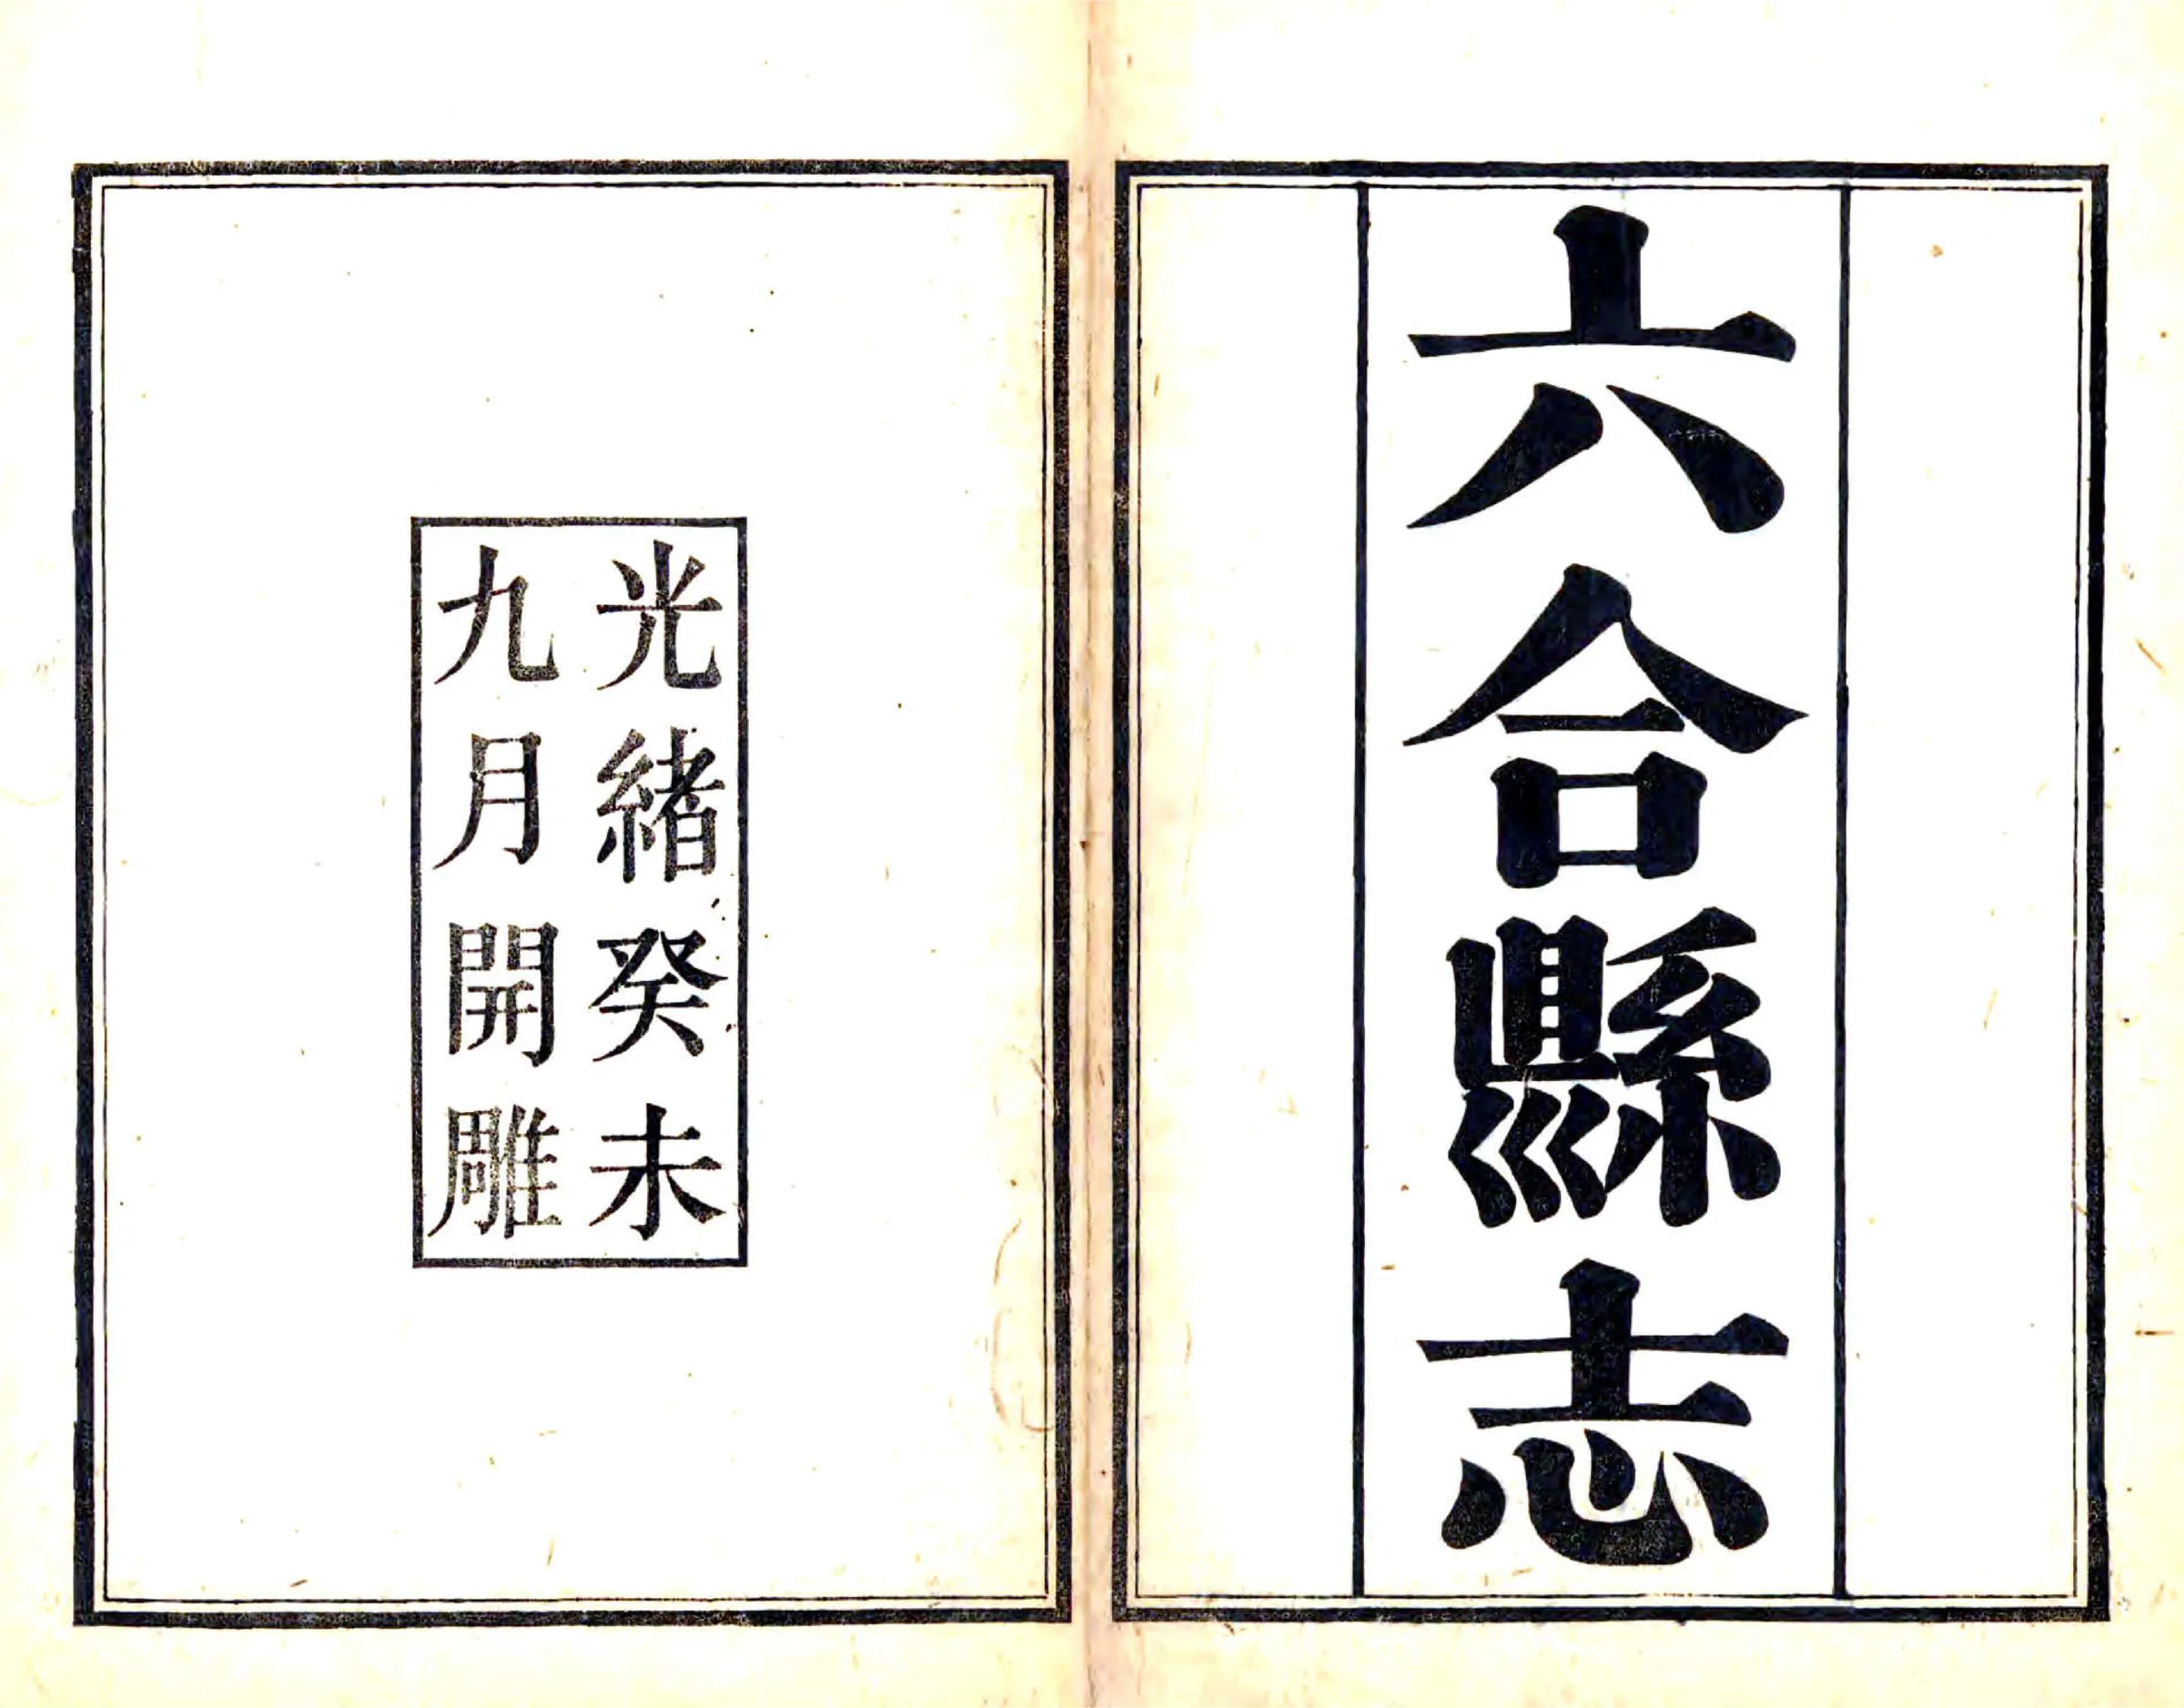 六合縣志
光緒癸未
九月開雕